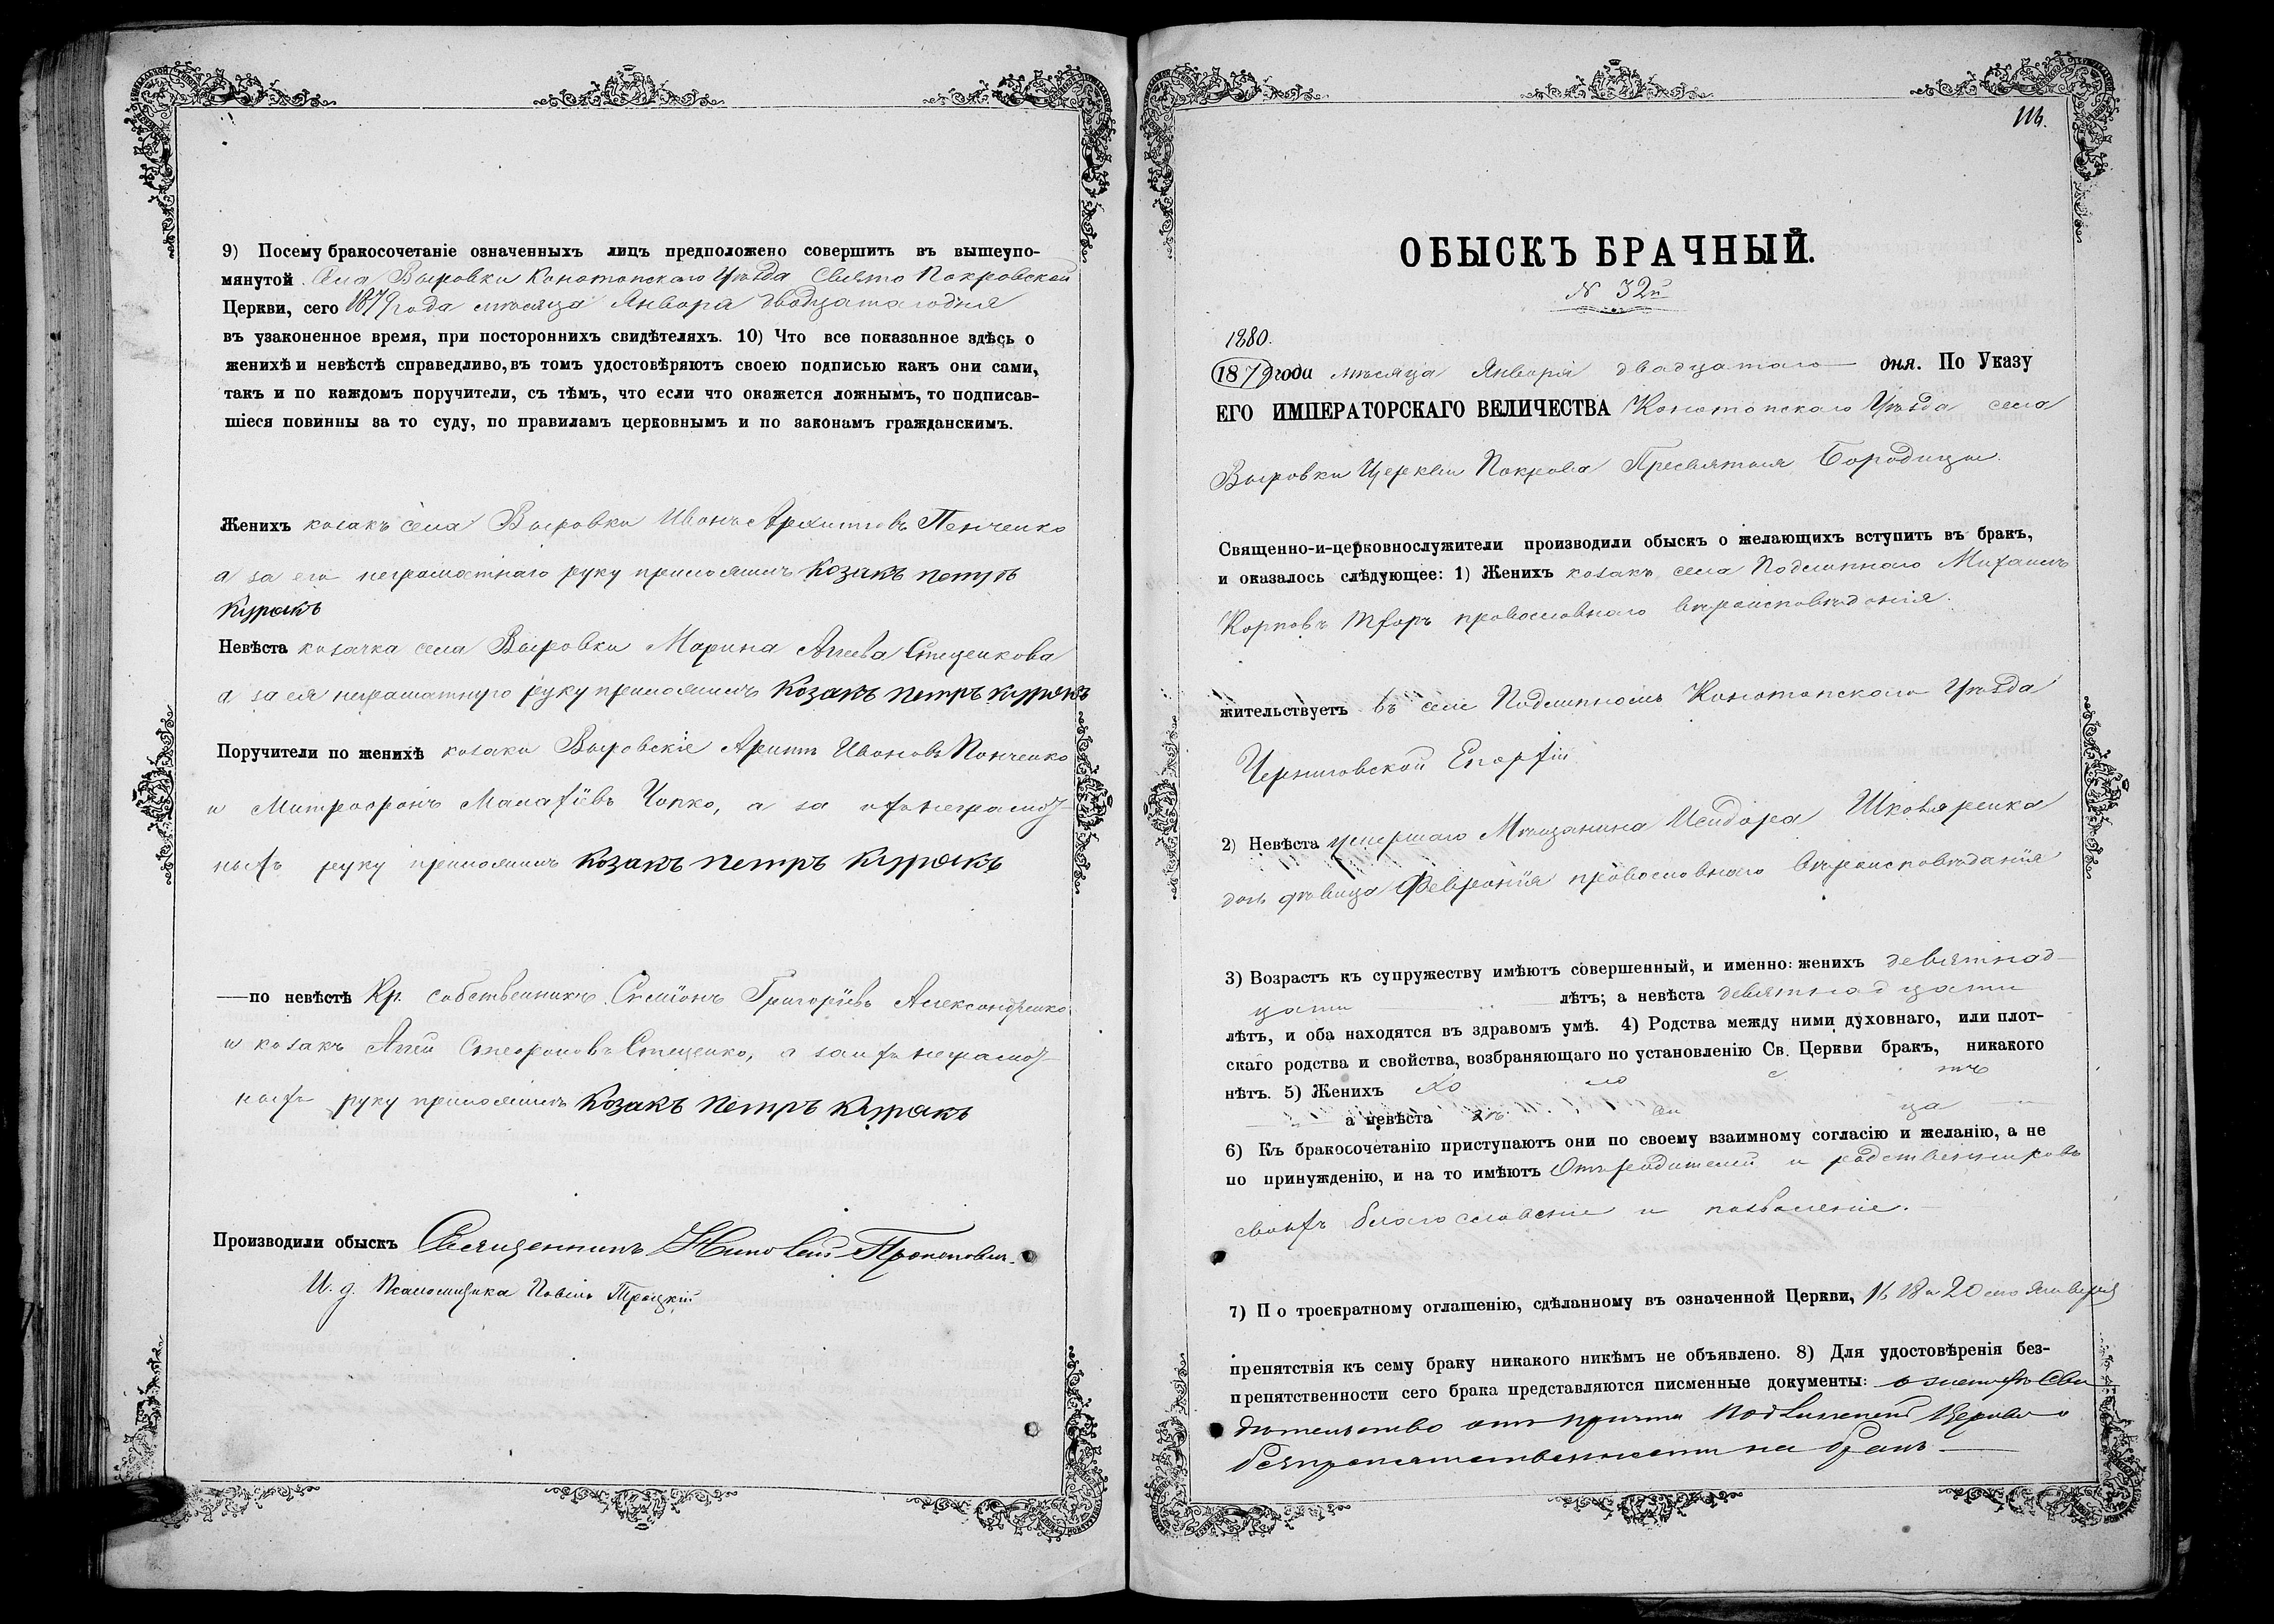 9) Посему бракосочетаніе означенныхъ лицъ предположено совершить въ вышеупо-
мянутой Села Выровки Конотопскаго Уѣзда Свято Покровской
Церкви, сего 1879 года мѣсяца Января двадцатаго дня
въ узаконенное время, при постороннихъ свидѣтеляхъ. 10) Что все показанное здѣсь о
женихѣ и невѣстѣ справедливо, въ томъ удостовѣряютъ своею подписью какъ они сами,
такъ и по каждомъ поручители, съ тѣмъ, что если что окажется ложнымъ, то подписав-
шіеся повинны за то суду, по правиламъ церковнымъ и по законамъ гражданскимъ.
Женихъ козакъ села Выровки Иванъ Пенченко
а за его неграмотнаго руку приложилъ Козакъ петръ
Курякъ
Невѣста козачка села Выровки Марина Агеева Стеценкова
а за ея неграматную руку приложилъ Козакъ петръ курякъ
Поручители по женихѣ козаки Выровскіе Архипъ Ивановъ Понченко
и Митрофонъ Малафіевъ Чопко, а за ихъ неграмот-
ныхъ руку приложилъ Козакъ петръ курякъ
—по невѣстѣ Кр. собственникъ Симіонъ Григоріевъ Александренко
и козакъ Агей Стефоновъ Стеценко, а за ихъ неграмот-
ныхъ руку приложилъ Козакъ петръ курякъ
Производили обыскъ Священникъ Прокоповичъ.
И. д. Псаломщика Павелъ Троцкій
116.
ОБЫСКЪ БРАЧНЫЙ.
№ 32й
1880.
1879 года мѣсяца Января двадцатаго дня. По Указу
ЕГО ИМПЕРАТОРСКАГО ВЕЛИЧЕСТВА Конотопскаго Уѣзда села
Выровки Церкви Покрова Пресвятыя Бородицы.
Священно-и-церковнослужители производили обыскъ о желающихъ вступить въ бракъ,
и оказалось слѣдующее: 1) Женихъ козакъ села Подлипнаго Михаилъ
Корповъ Тхоръ провославнаго вѣроисповѣданія.
жительствуетъ въ селѣ Подлипномъ Конотопскаго Уѣзда
Черниговской Епархіи
2) Невѣста умершаго Мѣщанина Исидора Шкояренка
дочь дѣвица Февронія провославнаго вѣроисповѣданія
3) Возрастъ къ супружеству имѣютъ совершенный, и именно: женихъ девятнад-
цати лѣтъ; а невѣста девятнадцати
лѣтъ, и оба находятся въ здравомъ умѣ. 4) Родства между ними духовнаго, или плот-
скаго родства и свойства, возбраняющаго по установленію Св. Церкви бракъ, никакого
нѣтъ. 5) Женихъ хо ло с тъ
а невѣста дѣ ви ца
6) Къ бракосочетанію приступаютъ они по своему взаимному согласію и желанію, а не
по принужденію, и на то имѣютъ Отъ родителей и родственниковъ
своихъ благословеніе и позволеніе.
7) По троекратному оглашенію, сдѣланному въ означенной Церкви, 16 18 и 20 Января
препятствія къ сему браку никакого никѣмъ не объявлено. 8) Для удостовѣренія без-
препятственности сего брака представляются писменные документы: Сви
дѣтельство отъ причта Подлипенской Церкви о
безпрепятственности на бракъ